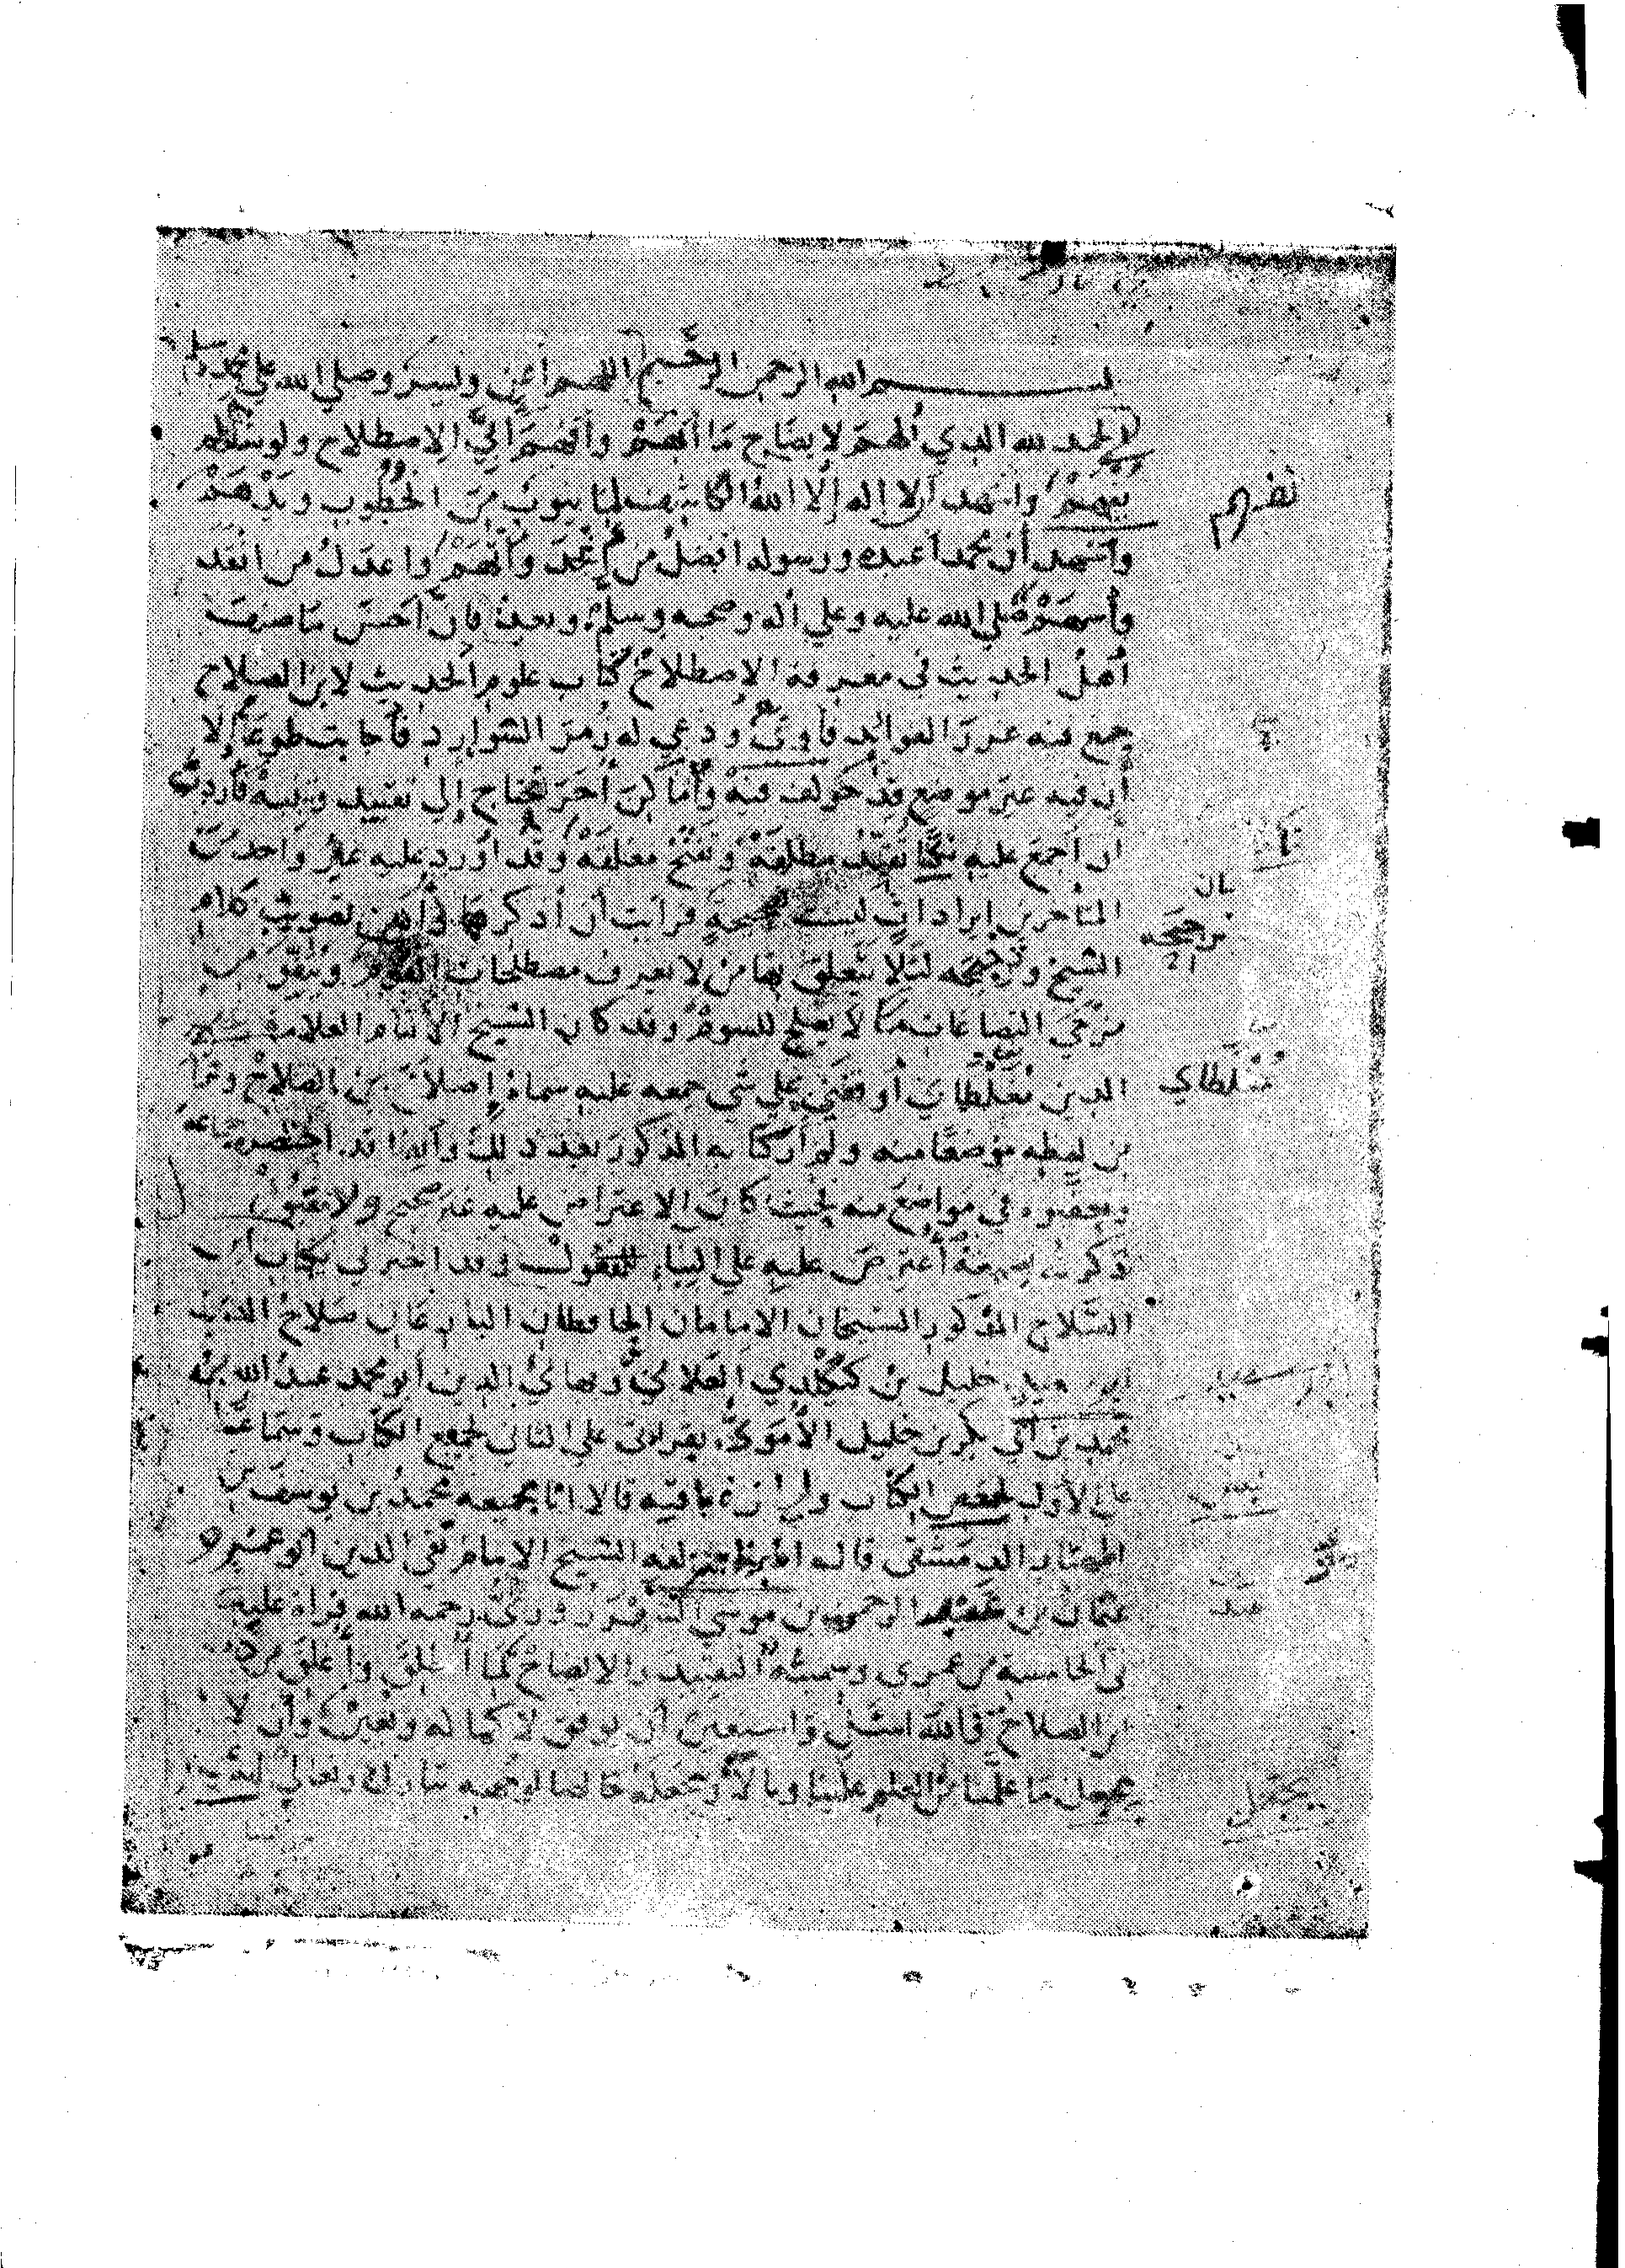 بسم الله الرحمن الرحيم اللهم أعن ويسر وصلى الله على محمد وسلم
الحمد لله الذي ألهم لإيضاح ما أبهم وأفهم إلى الاصطلاح ولو شاء لم
يفهم وأشهد أن لا إله إلا الله الكاشف لما ينوب من الخطوب ويدهم
وأشهد أن محمدا عبده ورسوله أفضل من أنجد وأتهم وأعدل من أنفد
وأسهم صلى الله عليه وعلى آله وصحبه وسلم وبعد فإن أحسن ما صنف
أهل الحديث في معرفة الاصطلاح كتاب علوم الحديث لابن الصلاح
جمع فيه غرر الفوائد فأوعى ودعى له زمر الشوارد فأجابت طوعا إلا
أن فيه غير موضع قد خولف فيه وأماكن أخر تحتاج إلى تقييد وتنبيه فأردت
أن أجمع عليه نكتا تقيد مطلقه وتفتح مغلقه وقد أورد عليه غير واحد من
المتأخرين إيرادات ليست صحيحة فرأيت أن أذكرها وأبين تصويب كلام
الشيخ وترجيحه لئلا يتعلق بها من لا يعرف مصطلحات القوم وينفق من
مزجى البضاعات ما لا يصلح للسوم وقد كان الشيخ الإمام العلامة
الدين مغلطاي أوقفني على شيء جمعه عليه سماه إصلاح بن الصلاح وقرأ
من لفظه موضعا منه ولم أر كتابه المذكور بعد ذلك وأيضا قد اختصره جماعة
وتعقبوه في مواضع منه بحيث كان الاعتراض عليه غير صحيح ولا مقبول
ذكرت بصيغة اعترض عليه على البناء للمفعول وقد أخبرني بكتاب ابن
الصلاح المذكور الشيخان الإمامان الحافظان البارعان صلاح الدين
أبو سعيد خليل بن كيكلدي العلائي وبهاء الدين أبو محمد عبد الله بن
محمد بن أبي بكر بن خليل الأموي بقراءتي على الثاني لجميع الكتاب وسماعا
على الأول لبعض الكتاب وإجازة لباقيه قالا أنا بجميعه محمد بن يوسف بن
المهتار الدمشقي قال أخبرنا مؤلفه الشيخ الإمام تقي الدين أبو عمرو
عثمان بن عبد الرحمن بن موسى الشهرزوري رحمه الله قراءة عليه
في الخامسة من عمري وسميته التقييد والإيضاح لما أطلق وأغلق من
ابن الصلاح فالله أسأل وأستعين أن يوفق لإكماله ويعين وأن لا
يجعل ما علمنا من العلم علينا وبالا ويجعله خالصا لوجهه تبارك وتعالى
نفهم
بيان
ترجيحه
مغلطاي
عبد
يجعل